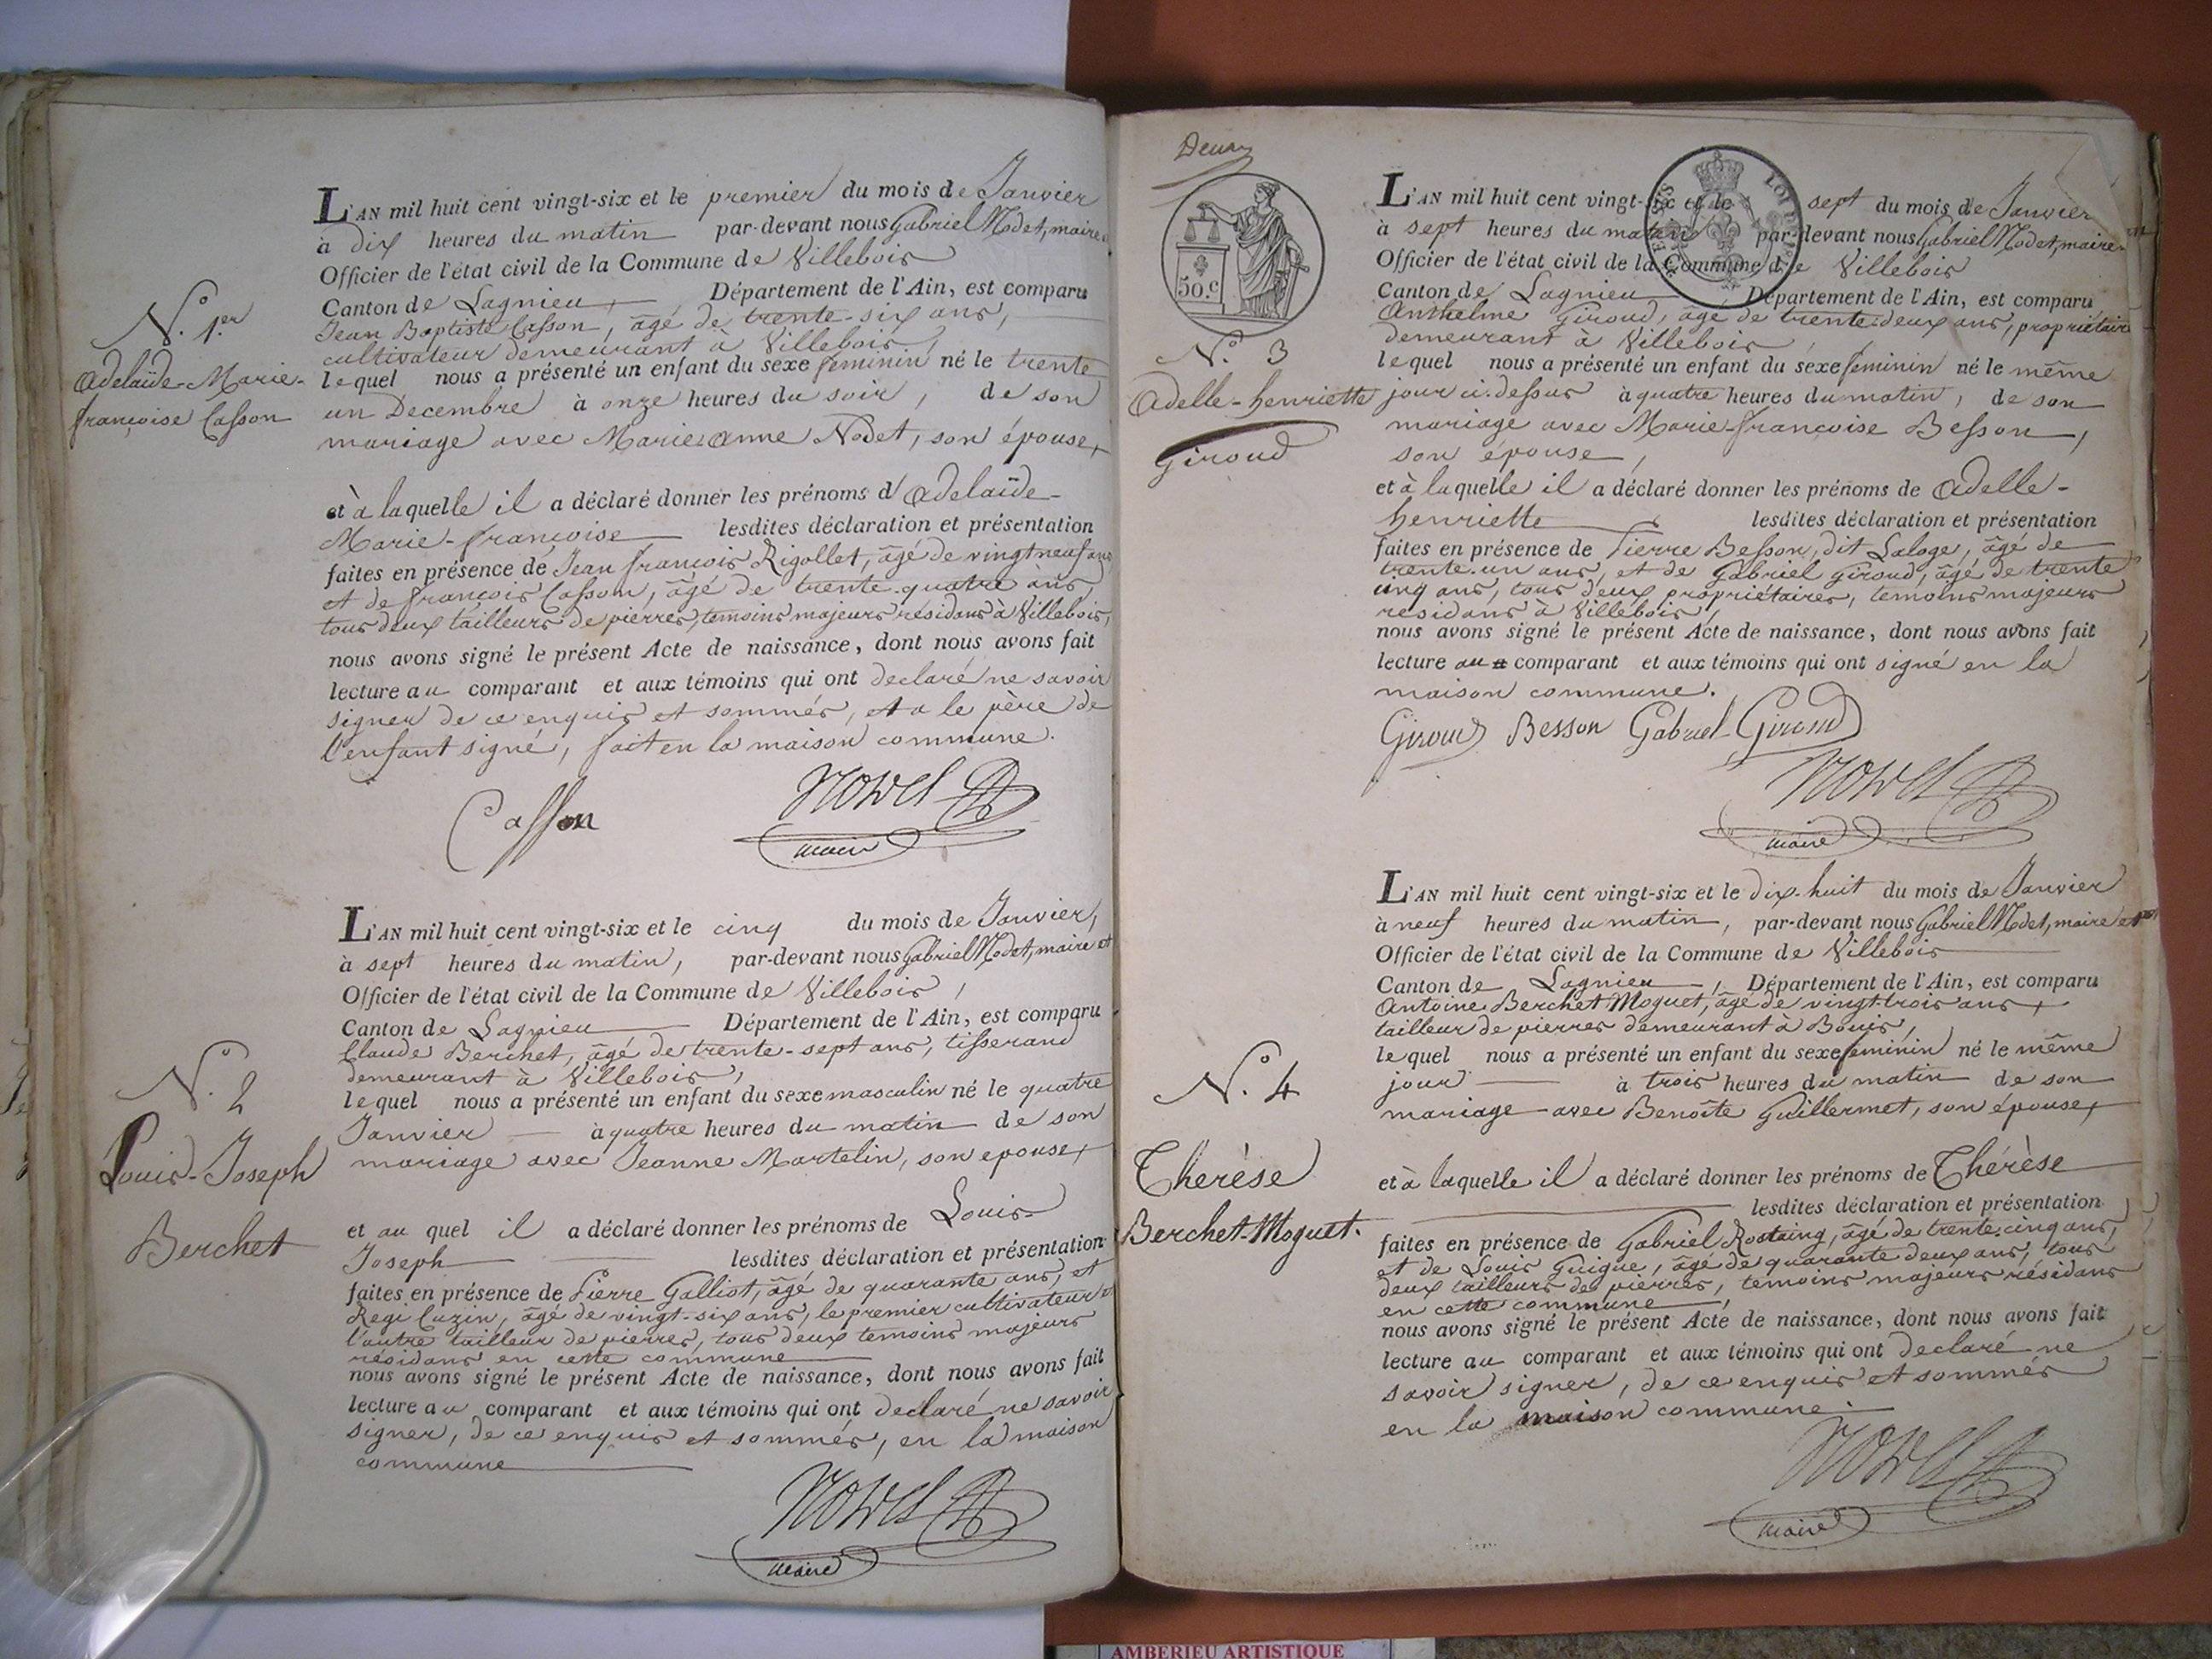 N.° 1.er
Adelaïde-Marie-
françoise Casson
L'AN mil huit cent vingt-six et le premier du mois de Janvier
à dix heures du matin par-devant nous Gabriel Nodet, maire
Officier de l'état civil de la Commune de Villebois
Canton de Lagnieu, Département de l'Ain, est comparu
Jean Baptiste Casson, âgé de trente-six ans,
cultivateur demeurant à Villebois,
lequel nous a présenté un enfant du sexe feminin né le trente
un Decembre à onze heures du soir, de son
mariage avec Marie anne Nodet, son épouse,
et à laquelle il a déclaré donner les prénoms d'Adelaïde-
Marie-françoise lesdites déclaration et présentation
faites en présence de Jean françois Rigollet, âgé de vingt neuf ans
et de françois Casson, âgé de trente-quatre ans
tous deux tailleurs de pierres, temoins majeurs résidans à Villebois,
nous avons signé le présent Acte de naissance, dont nous avons fait
lecture au comparant et aux témoins qui ont declaré ne savoir
signer de ce enquis et sommés, et a le père de
l'enfant signé, fait en la maison commune.
Casson Nodet
maire
N.° 2
Louis-Joseph
Berchet
L'AN mil huit cent vingt-six et le cinq du mois de Janvier,
à sept heures du matin, par-devant nous Gabriel Nodet, maire et
Officier de l'état civil de la Commune de Villebois,
Canton de Lagnieu Département de l'Ain, est comparu
Claude Berchet, âgé de trente-sept ans, tisserand
demeurant à Villebois,
lequel nous a présenté un enfant du sexe masculin né le quatre
Janvier à quatre heures du matin de son
mariage avec Jeanne Martelin, son epouse,
et au quel il a déclaré donner les prénoms de Louis-
Joseph lesdites déclaration et présentation
faites en présence de Pierre Galliot, âgé de quarante ans, et
Regi Cuzin, âgé de vingt-six ans, le premier cultivateur et
l'autre tailleur de pierres, tous deux temoins majeurs
résidans en cette commune
nous avons signé le présent Acte de naissance, dont nous avons fait
lecture au comparant et aux témoins qui ont declaré ne savoir
signer, de ce enquis et sommés, en la maison
commune
Nodet
maire
Deux
50.c
N.° 3
Adelle-henriette
Giroud
L'AN mil huit cent vingt-six et le sept du mois de Janvier
à sept heures du matin par-devant nous Gabriel Nodet, maire
Officier de l'état civil de la Commune de Villebois
Canton de Lagnieu Département de l'Ain, est comparu
Anthelme Giroud, âgé de trente deux ans, propriétaire
demeurant à Villebois,
lequel nous a présenté un enfant du sexe feminin né le même
jour ci-dessus à quatre heures du matin, de son
mariage avec Marie françoise Besson,
son épouse,
et à laquelle il a déclaré donner les prénoms de Adelle-
henriette lesdites déclaration et présentation
faites en présence de Pierre Besson, dit Laloge, âgé de
trente-un ans, et de Gabriel Giroud, âgé de trente
cinq ans, tous deux propriétaires, temoins majeurs
residans à Villebois,
nous avons signé le présent Acte de naissance, dont nous avons fait
lecture au comparant et aux témoins qui ont signé en la
maison commune.
Giroud Besson Gabriel Giroud
Nodet
maire
N.° 4
Therèse
Berchet-Moguet.
L'AN mil huit cent vingt-six et le dix-huit du mois de Janvier
à neuf heures du matin, par-devant nous Gabriel Nodet, maire et
Officier de l'état civil de la Commune de Villebois
Canton de Lagnieu, Département de l'Ain, est comparu
Antoine Berchet Moguet, âgé de vingt-trois ans,
tailleur de pierres demeurant à Bouis,
lequel nous a présenté un enfant du sexe feminin né le même
jour à trois heures du matin de son
mariage avec Benoîte Guillermet, son épouse,
et à laquelle il a déclaré donner les prénoms de Thérèse
lesdites déclaration et présentation
faites en présence de Gabriel Rostaing, âgé de trente-cinq ans,
et de Louis Guigue, âgé de quarante deux ans, tous
deux tailleurs de pierres, temoins majeurs résidans
en cette commune,
nous avons signé le présent Acte de naissance, dont nous avons fait
lecture au comparant et aux témoins qui ont declaré ne
savoir signer, de ce enquis et sommés
en la maison commune.
Nodet
maire
AMBERIEU ARTISTIQUE